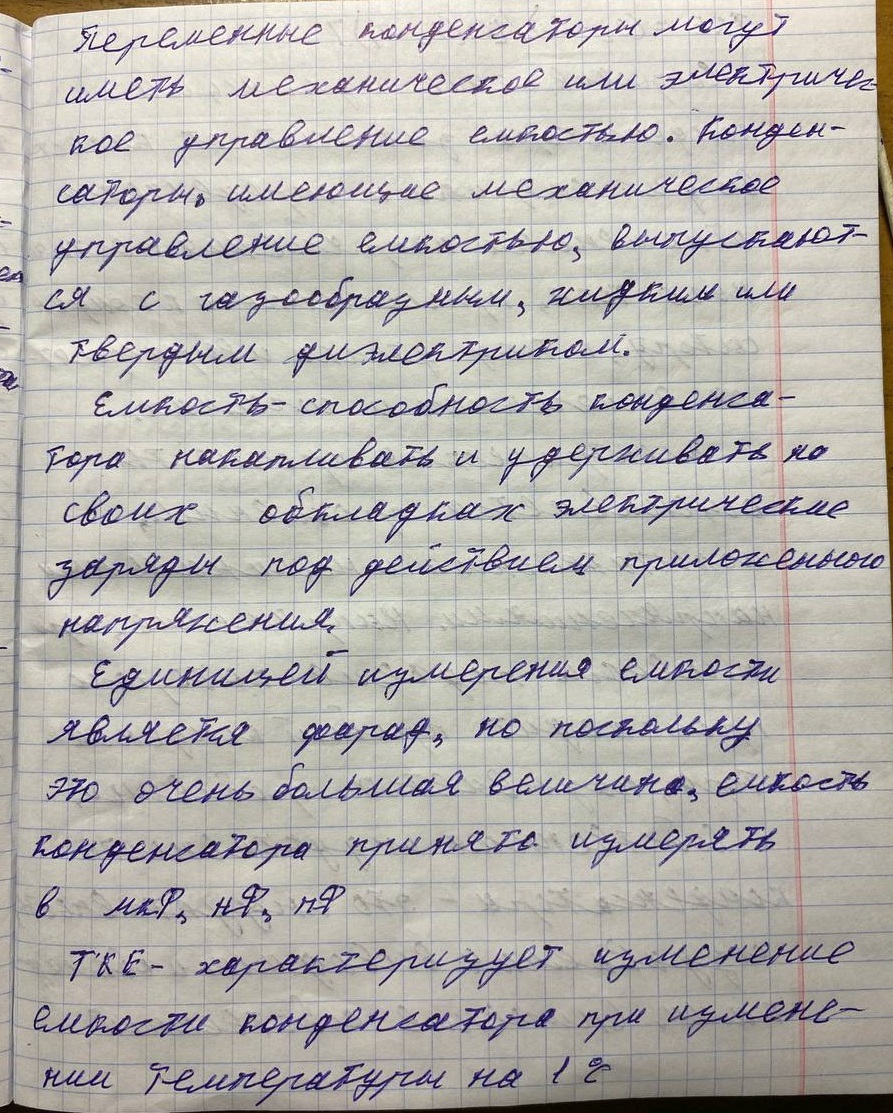 Переменные конденсаторы могут
иметь механическое или электричес-
кое управление емкостью. Конден-
саторы, имеющие механическое
управление емкостью, выпускают-
ся с газообразным, жидким или
твердым диэлектриком.
Емкость - способность конденса-
тора накапливать и удерживать на
своих обкладках электрические
заряды под действием приложенного
напряжения.
Единицей измерения емкости
является фарад, но поскольку
это очень большая величина, емкость
конденсатора принято измерять
в мкФ, нФ, пФ
ТКЕ - характеризует изменение
емкости конденсатора при измене-
нии температуры на 1 °C